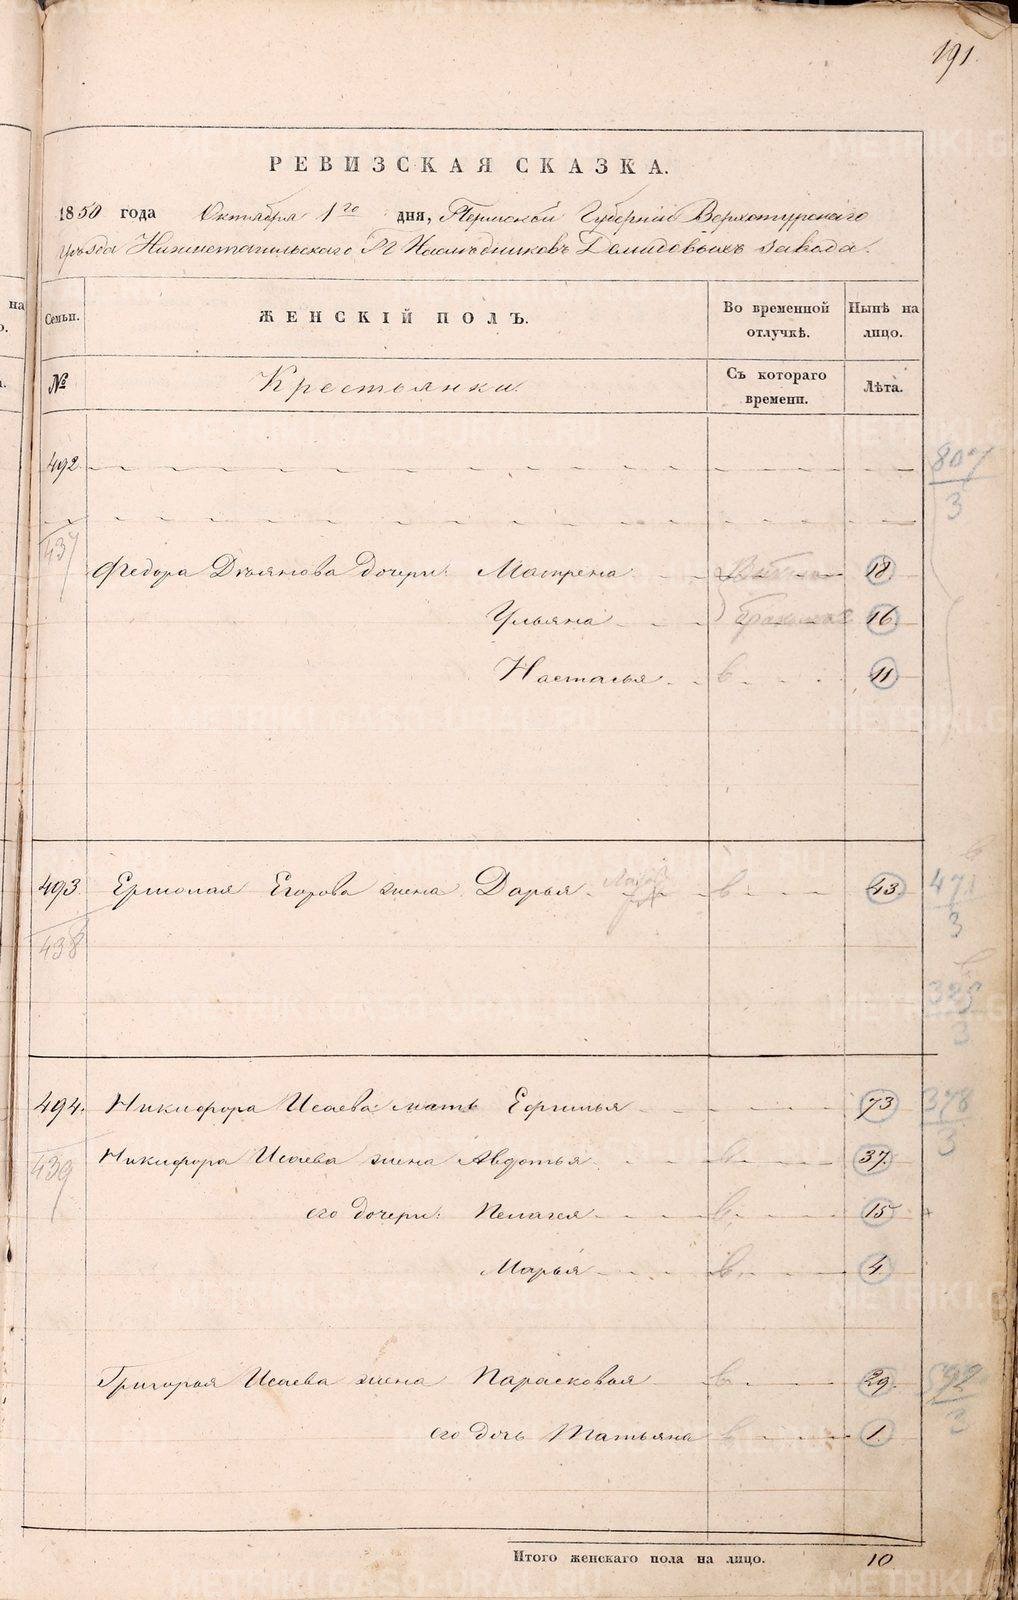 191.
РЕВИЗСКАЯ СКАЗКА.
1850 года Октября 1го дня, Пермской Губернiи Верхотурскаго
уѣзда Нижнетагильскаго Гг Наслѣдниковъ Демидовыхъ завода.
на
Семьи. ЖЕНСКIЙ ПОЛЪ. Во временной отлучкѣ. Нынѣ на лицо.
№ Крестьянки. Съ котораго времени. Лѣта.
492 807/3
437
Федора Демьянова дочери: Матрена 18.
Ульяна 16.
Настасья в 11
493. Ермолая Егорова жена Дарья в 43. 471/3
438
325/3
494. Никифора Исаева: мать Ефимья 73 378/3
439 Никифора Исаева жена Авдотья в 37.
его дочери: Пелагея в 15
Марья в. 4
Григорья Исаева жена Парасковья в 29. 592/3
его дочь Татьяна в 1.
Итого женскаго пола на лицо. 10
METRIKI.GASO-URAL.RU